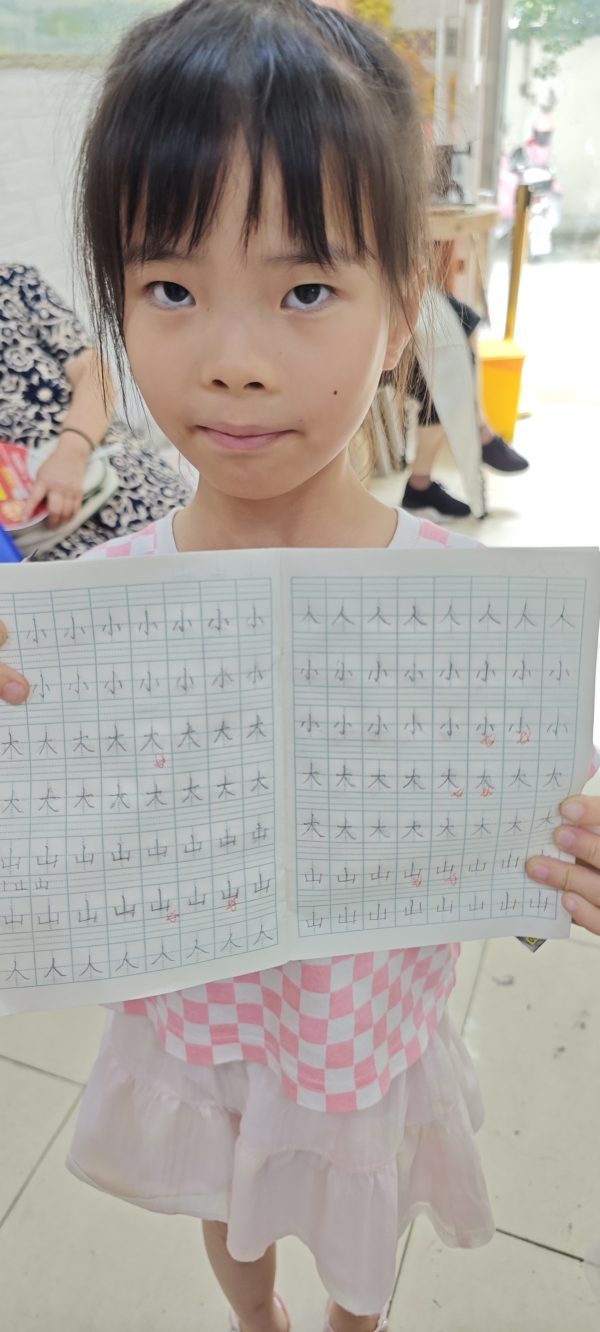 小小小小小小小
小小小小小小小
大大大大大大大大
大大大大大大大大
山山山山山山山山
山山
山山山山山山山山
人人人人人人人人
人人人人人人人人
小小小小小小小小
小小小小小小小小
大大大大大大大大
大大大大大大大大
山山山山山山山山
山山山山山山山山